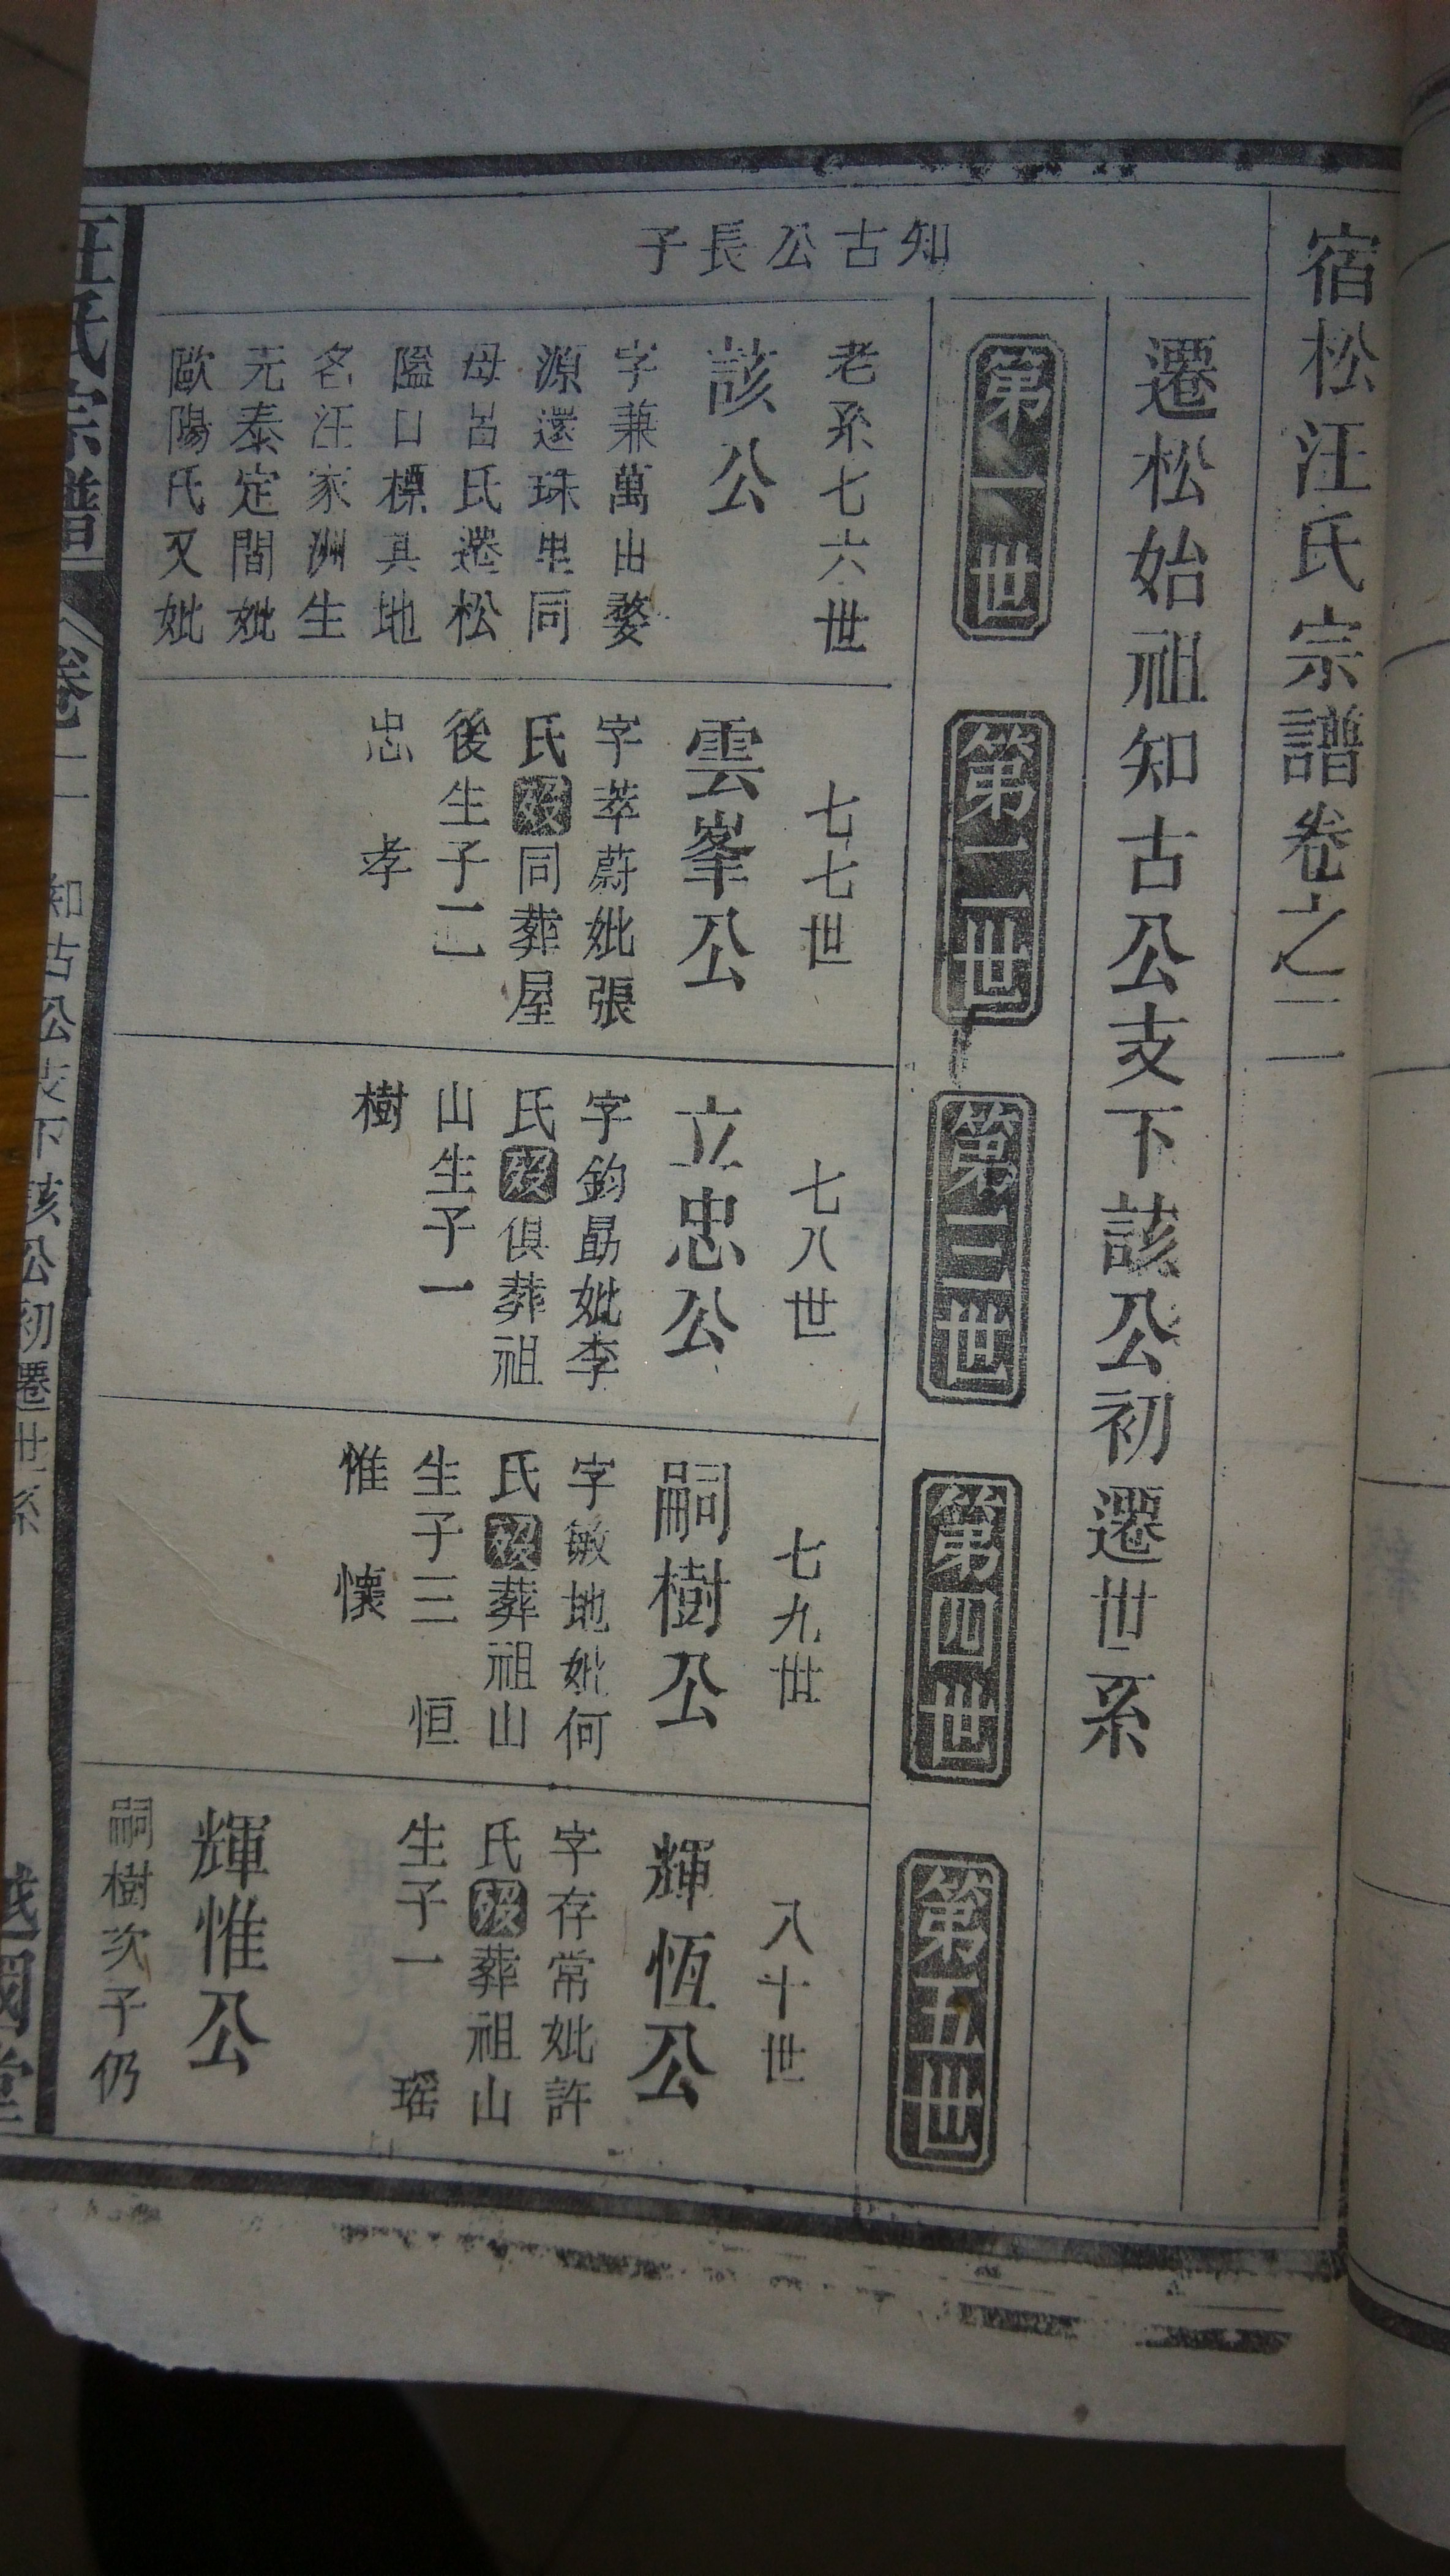 宿松汪氏宗譜卷之二
遷松始祖知古公支下該公初遷世系
第一世
第二世
第三世
第四世
第五世
知古公長子
老系七六世
該公
字兼萬由婺
源還珠里同
母呂氏遷松
隘口標其地
名汪家洲生
元泰定間妣
歐陽氏又妣
七七世
雲峯公
字萃蔚妣張
氏歿同葬屋
後生子二
忠 孝
七八世
立忠公
字鈞勗妣李
氏歿俱葬祖
山生子一
樹
七九世
嗣樹公
字敏地妣何
氏歿葬祖山
生子三 恒
惟 懷
八十世
輝恆公
字存常妣許
氏歿葬祖山
生子一 瑶
輝惟公
嗣樹次子仍
汪氏宗譜
卷二
知古公支下該公初遷世系
越國堂